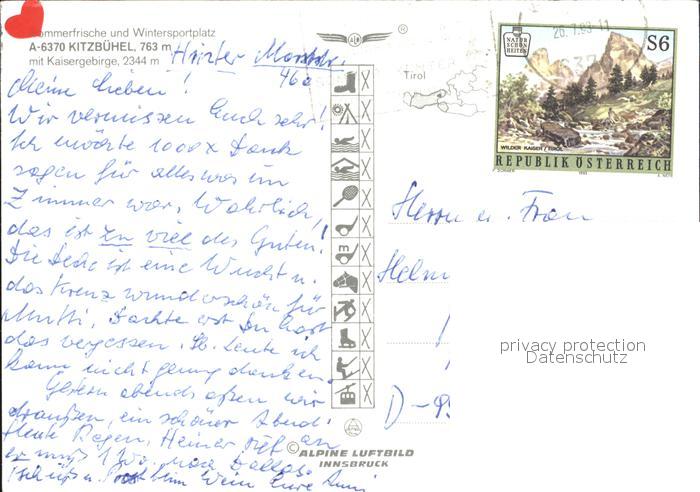 Sommerfrische und Wintersportplatz
A-6370 KITZBÜHEL, 763 m
mit Kaisergebirge, 2344 m
Meine Lieben!
Wir vermissen Euch sehr!
Ich möchte 1000x Dank
sagen für alles was im
Zimmer war, Wahrlich,
das ist zu viel des Guten!
Die Decke ist eine Wucht u.
das Kreuz wunderschön für
Mutti, Dachte erst Du hast
das vergessen. Lb. Leute ich
kann nicht genug danken.
Gestern abends aßen wir
draußen, ein schöner Abend!
Heute Regen, Heiner rief an
er muß 1 Wo. nach Dallas.
Tschüß u. Prost beim Wein Eure Anni
Tirol
20.7.93-11
NATUR
SCHÖN
HEITEN
S6
WILDER KAISER / TIROL
REPUBLIK ÖSTERREICH
1993
Herrn u. Frau
Helm
D-
privacy protection
Datenschutz
© ALPINE LUFTBILD
INNSBRUCK